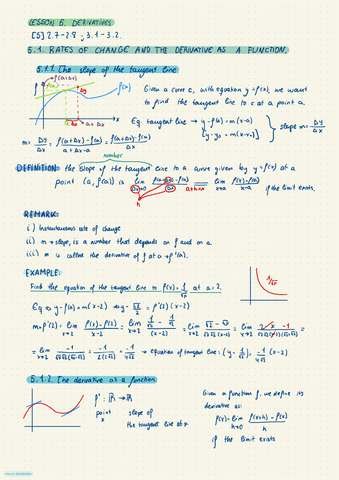 LESSON 5. DERIVATIVES
[5] 2.7-2.8 ; 3.1-3.2.
5.1. RATES OF CHANGE AND THE DERIVATIVE AS A FUNCTION.
5.1.1 The slope of the tangent line
f(a+Δx)
f(a)
Δy
f(x)
Δx
a a+Δx
Given a curve C, with equation y=f(x), we want
to find the tangent line to C at a point a.
Eq. tangent line → y-f(a) = m(x-a)
[y-y₀ = m(x-x₀)]
slope m = Δy/Δx
m = Δy/Δx = (f(a+Δx)-f(a))/(a+Δx-a) = (f(a+Δx)-f(a))/Δx
number
DEFINITION: the slope of the tangent line to a curve given by y=f(x) at a
point (a, f(a)) is lim Δx→0 (f(a+Δx)-f(a))/Δx = lim x→a (f(x)-f(a))/(x-a) if the limit exists.
a+h=x
h
REMARK:
i) Instantaneous rate of change
ii) m → slope, is a number that depends on f and on a.
iii) m is called the derivative of f at a → f'(a).
EXAMPLE:
Find the equation of the tangent line to f(x) = 1/√x at a=2.
1/√x
Eq → y-f(a) = m(x-2) → y-1/√2 = f'(2)(x-2)
m=f'(2) = lim x→2 (f(x)-f(2))/(x-2) = lim x→2 (1/√x - 1/√2)/(x-2) = lim x→2 (√2-√x)/(√x√2(x-2)) = lim x→2
= lim x→2 -1/(√x√2(√2+√x)) = -1/(2(2√2)) = -1/(4√2) → equation of tangent line: (y-1/√2) = -1/(4√2) (x-2)
5.1.2. The derivative as a function
f' : ℝ → ℝ
point slope of
x the tangent line at x.
Given a function f, we define its
derivative as:
f'(x) = lim h→0 (f(x+h)-f(x))/h
if the limit exists